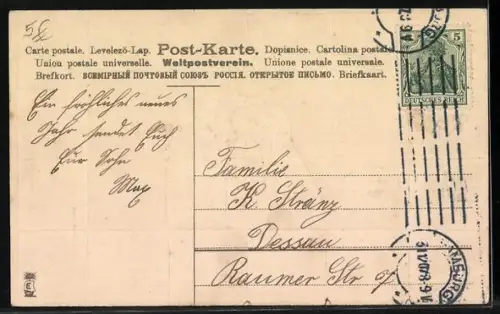 Post-Karte.
Carte postale. Levelezö-Lap. Dopisnice. Cartolina postale
Union postale universelle. Weltpostverein. Unione postale universale.
Brefkort. ВСЕМІРНЫЙ ПОЧТОВЫЙ СОЮЗЪ РОССІЯ. ОТКРЫТОЕ ПИСЬМО. Briefkaart.
Ein fröhliches neues
Jahr sendet Euch
Euer Sohn
Max
Familie
K. Stränz
Dessau
Raumer Str 7
5
DEUTSCHES REICH